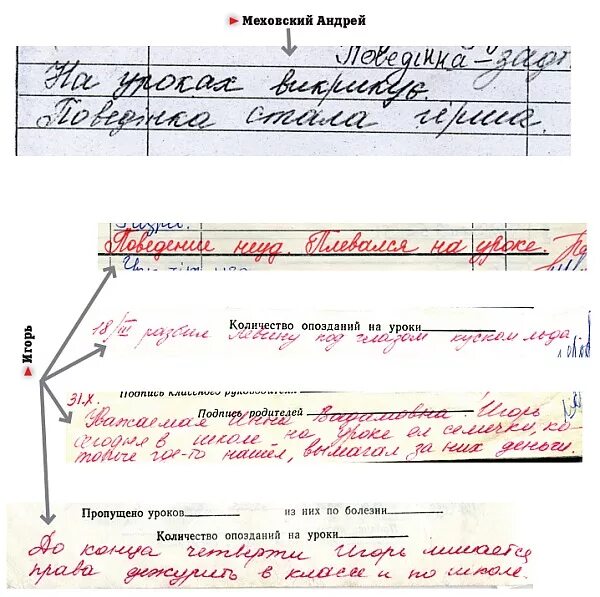 Меховский Андрей
Поведінка – зад
На уроках викрикує.
Поведінка стала гірша.
Поведение неуд. Плевался на уроке.
Игорь
Количество опозданий на уроки
18/III разбил Левину под глазом куском льда
Подпись классного руководителя
31.X.
Подпись родителей
Уважаемая Инна Вадимовна Игорь
сегодня в школе на уроке ел семечки, ко-
торые где-то нашёл, вымагал за них деньги.
Пропущено уроков из них по болезни
Количество опозданий на уроки
До конца четверти Игорь лишается
права дежурить в классе и по школе.